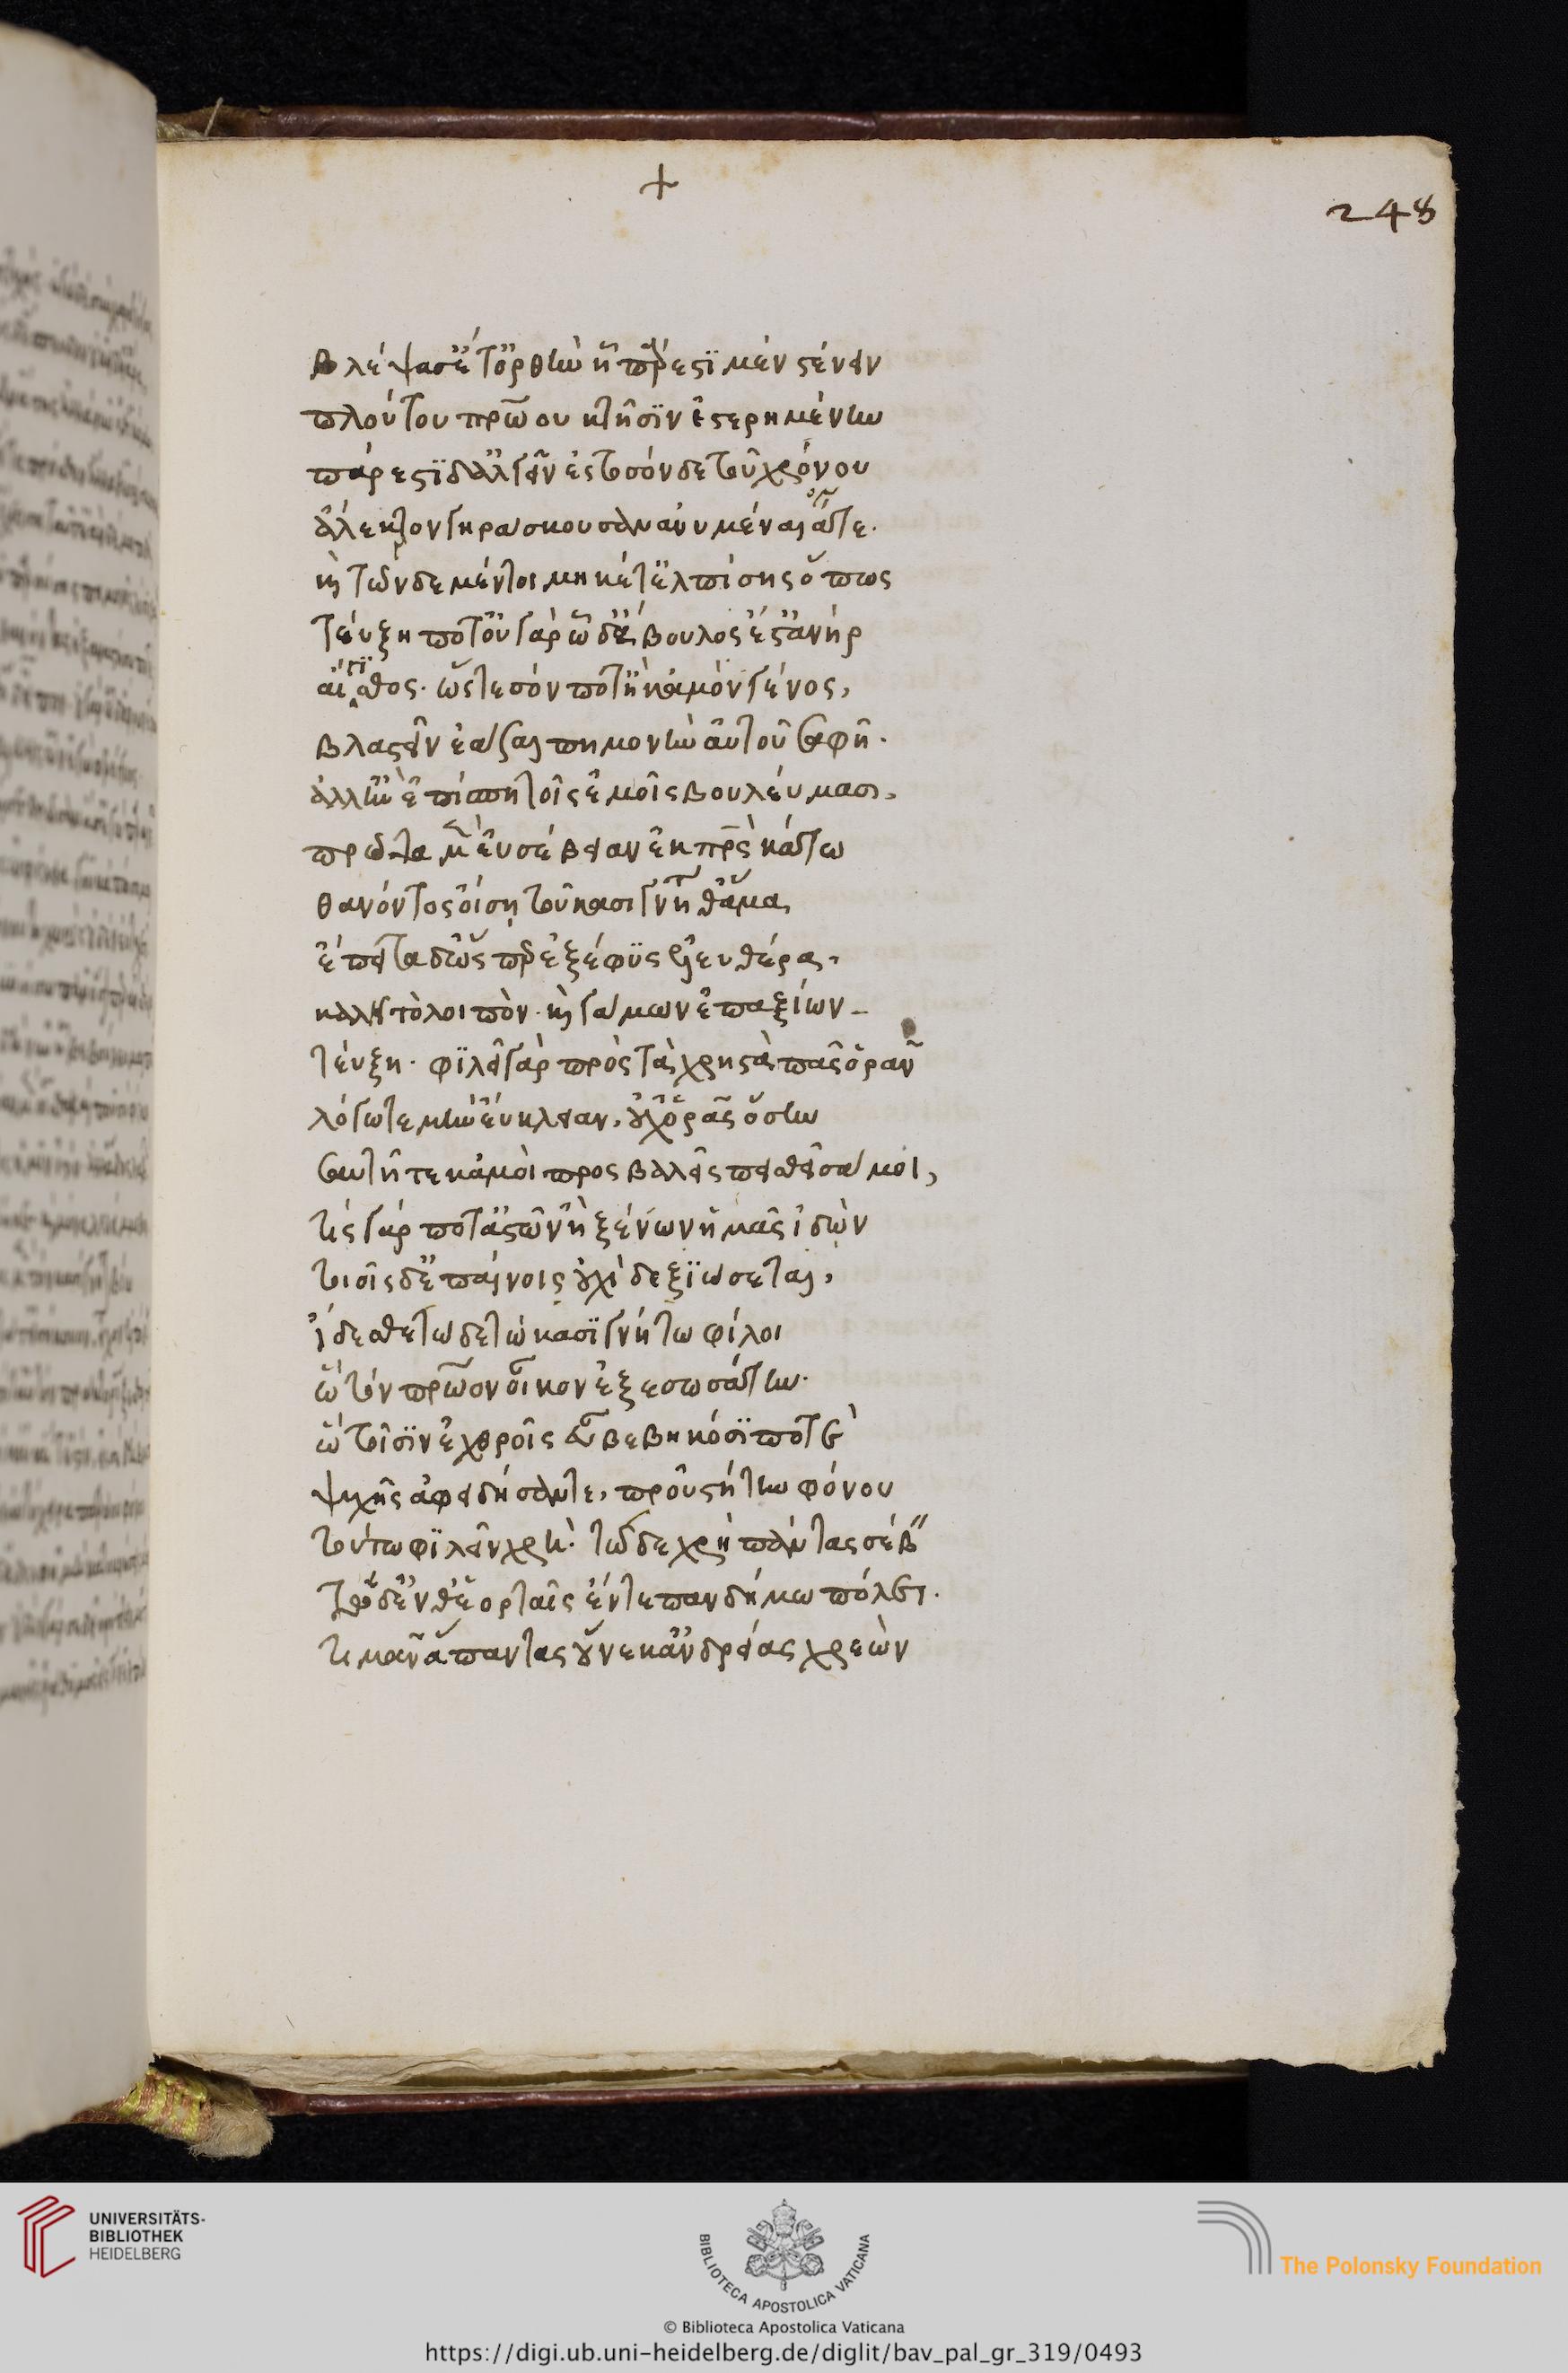 +
248
βλέψασ' ἔτ' ὀρθὴν ἧ πάρεστι μὲν στένειν
πλούτου πρώου κτῆσϊν ἐστερημένην
πάρεστϊ δ' ἀλγεῖν ἐς τοσόνδε τοῦ χρόνου
ἄλεκτρον γηράσκουσαν ἀνυμέναιά τε.
καὶ τῶνδε μέντοι μηκέτ' ἐλπίσης ὅπως
τεύξη ποτ' οὐ γὰρ ὧδ' ἄβουλος ἔστ' ἀνήρ
αἴγισθος. ὥστε σόν ποτ' ἢ κἀμὸν γένος,
βλαστεῖν ἐάσαι πημονὴν αὐτοῦ σαφῆ.
ἀλλ' ἢν ἐπίσπη τοῖς ἐμοῖς βουλεύμασι,
πρῶτα μὲν εὐσέβειαν ἐκ πρς κάτω
θανόντος οἴση τοῦ κασιγνήτου θ' ἅμα,
ἔπειτα δ' ὥσπερ ἐξέφυς ἐλευθέρα,
καλῆ τὸλοιπὸν. καὶ γάμων ἐπαξίων
τεύξη. φϊλεῖ γὰρ πρὸς τὰ χρηστὰ πᾶς ὁρᾶν
λόγω τε μὴν εὔκλειαν, οὐχ' ὁρᾶς ὅσην
σαυτῆ τε κἀμοὶ προςβαλεῖς πεισθεῖσά μοι,
τίς γάρ ποτ' ἀστῶν ἢ ξένων ἡμᾶς ἰδὼν
τοιοῖςδ' ἐπαίνοις οὐχὶ δεξϊώσεται,
ἴδεσθε τώδε τὼ κασϊγνήτω φίλοι
ὣ τὸν πρῶον οἶκον ἐξεσωσάτην.
ὣ τοῖσϊν ἐχθροῖς εὖ βεβηκόσϊ ποτὲ
ψυχῆς ἀφειδήσαντε, προὐστήτην φόνου
τούτω φϊλεῖν χρή. τώδε χρὴ πάντας σέβ''
τώδ' ἔν θ' ἑορταῖς ἔν τε πανδήμω πόλει.
τιμᾶν ἅπαντας οὕνεκ' ἀνδρείας χρεὼν
UNIVERSITÄTS-
BIBLIOTHEK
HEIDELBERG
BIBLIOTECA APOSTOLICA VATICANA
The Polonsky Foundation
© Biblioteca Apostolica Vaticana
https://digi.ub.uni-heidelberg.de/diglit/bav_pal_gr_319/0493